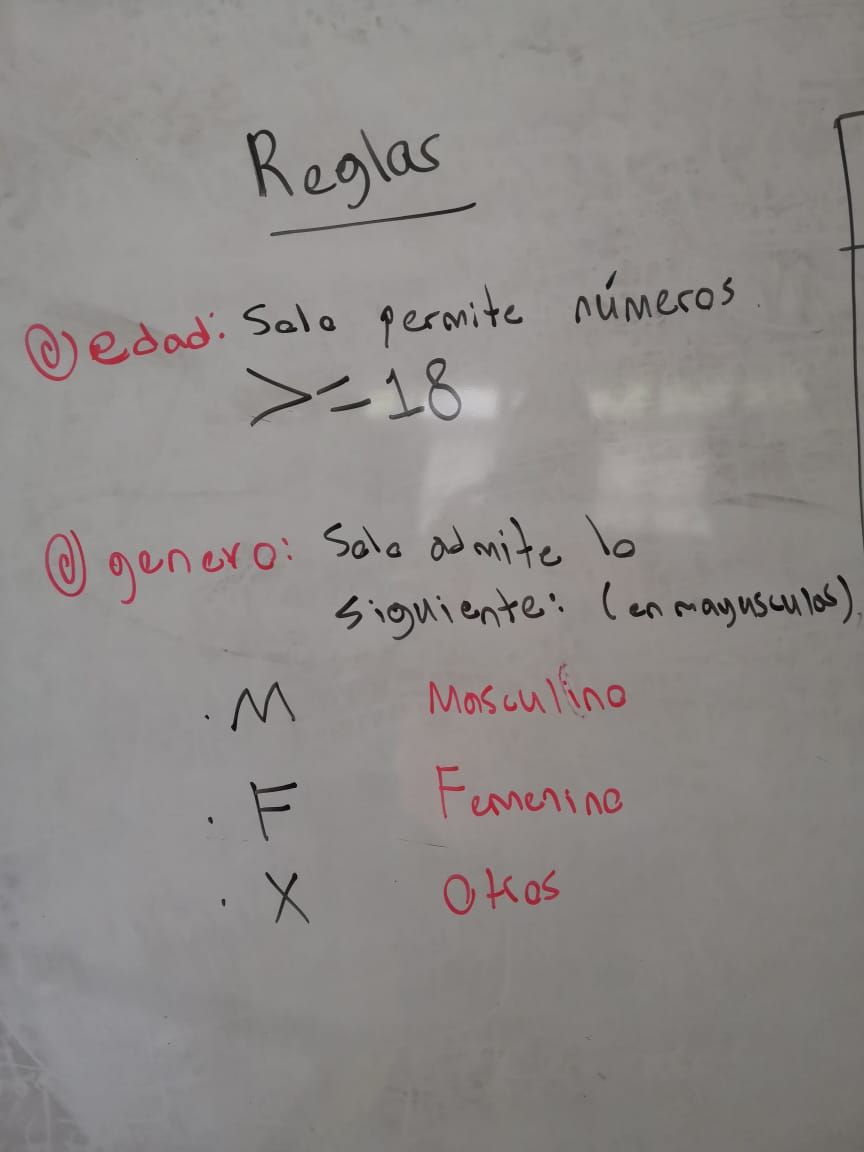 Reglas
@edad: Solo permite números.
>=18
@genero: Solo admite lo
siguiente: (en mayusculas).
. M Masculino
. F Femenino
. X Otros